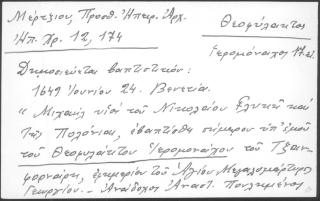 Μέρτζιου, Προσθ. Ἠπειρ. Ἀρχ.
Θεοφύλακτος
Ἠπ. Χρ. 12, 174
Ἱερομόναχος 17. αἰ.
Δημοσιεύεται βαπτιστικόν:
1649 Ἰουνίου 24. Βενετία.
"Μιχαὴλ υἱὸς τοῦ Νικολαίου καὶ
τῆς Πολόνιας, ἐβαπτίσθη σήμερον ὑπ' ἐμοῦ
τοῦ Θεοφυλάκτου Ἱερομονάχου τοῦ Τζαν-
φουρνάρη, ἐφημερίου τοῦ Ἁγίου Μεγαλομάρτυρος
Γεωργίου.- Ἀνάδοχος Ἀναστ.